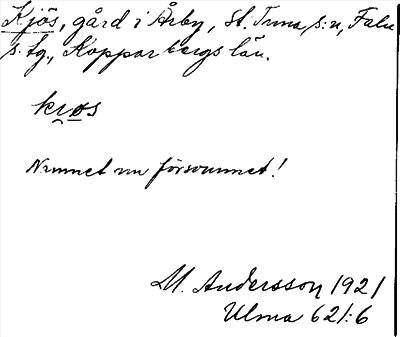 Kjös, gård i Årby, St. Tuna s:n, Falu
s. tg., Kopparbergs län.
kɩ̯øs
Namnet nu försvunnet!
M. Andersson 1921
Ulma 621:6